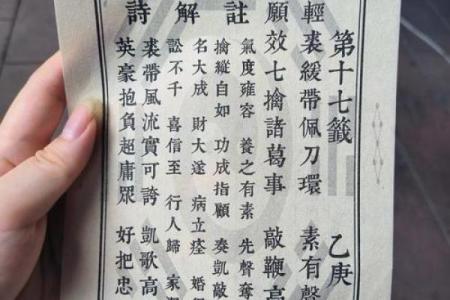 第十七籤 乙庚
輕裘緩帶佩刀環 素有聲
願效七擒諸葛事 敲鞭高
註
氣度雍容 養之有素 先聲奪
擒縱自如 功成指顧 奏凱敲
解
名大成 財大遂 病立痊 婚
訟不干 喜信至 行人歸 家
詩
裘帶風流實可誇 凱歌高
英豪抱負超庸眾 好把忠